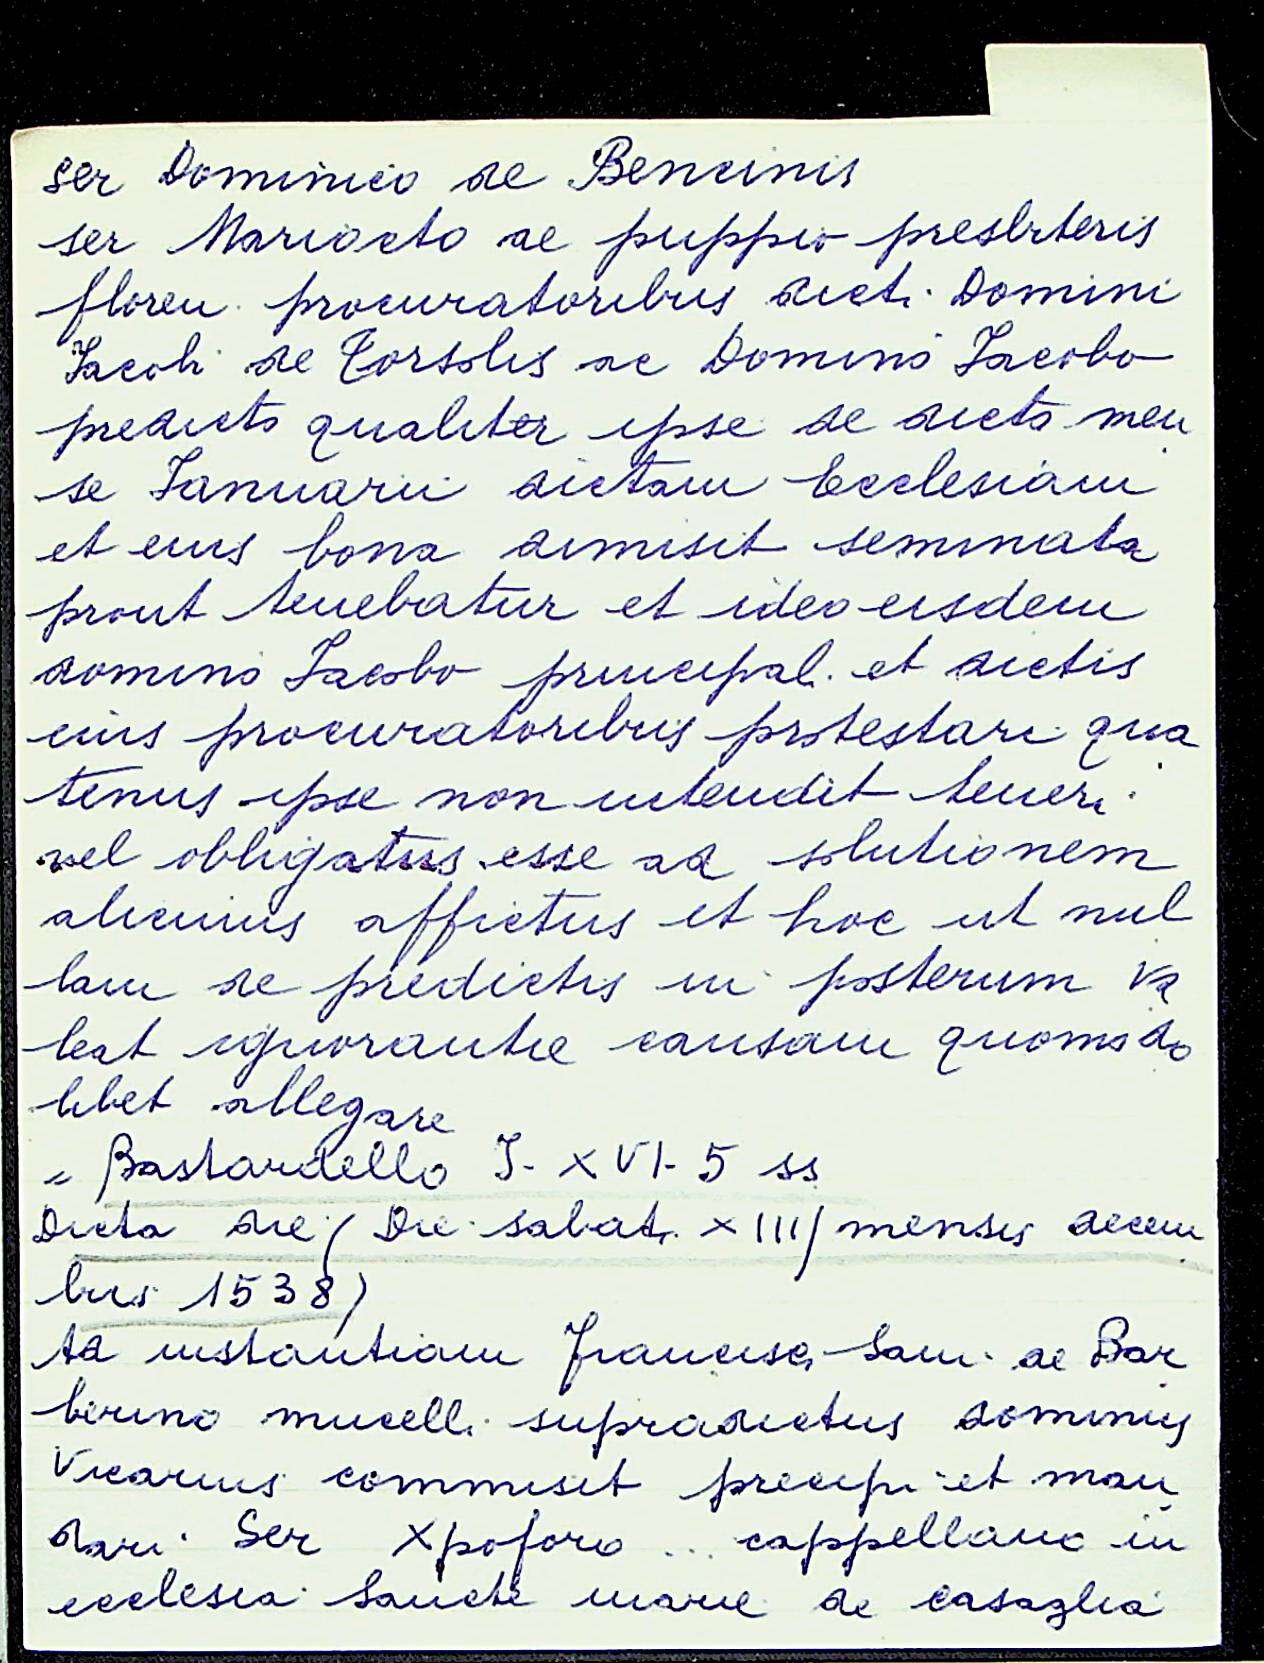 ser Dominico de Bencinis
ser Mariocto de puppio presbiteris
floren. procuratoribus dicti Domini
Jacobi de Corsolis ac Domino Jacobo
predicto qualiter ipse de dicto men
se Januarii dictam Ecclesiam
et eius bona dimisit seminata
prout tenebatur et ideo eisdem
domino Jacobo principal. et dictis
eius procuratoribus protestari qua
tenus ipse non intendit teneri
vel obligatus esse ad solutionem
alicuius affictus et hoc ut nul
lam de predictis in posterum va
leat ignorantie causam quomodo
libet allegare
" Bastardello J- XVI- 5 ss
Dicta die (Die sabati XIII mensis decem
bris 1538)
Ad instantiam Francisci Sam. de Bar
berino mucelli supradictus dominus
Vicarius commisit precipi et man
dari Ser Xpoforo ... cappellano in
ecclesia Sancte marie de casaglia